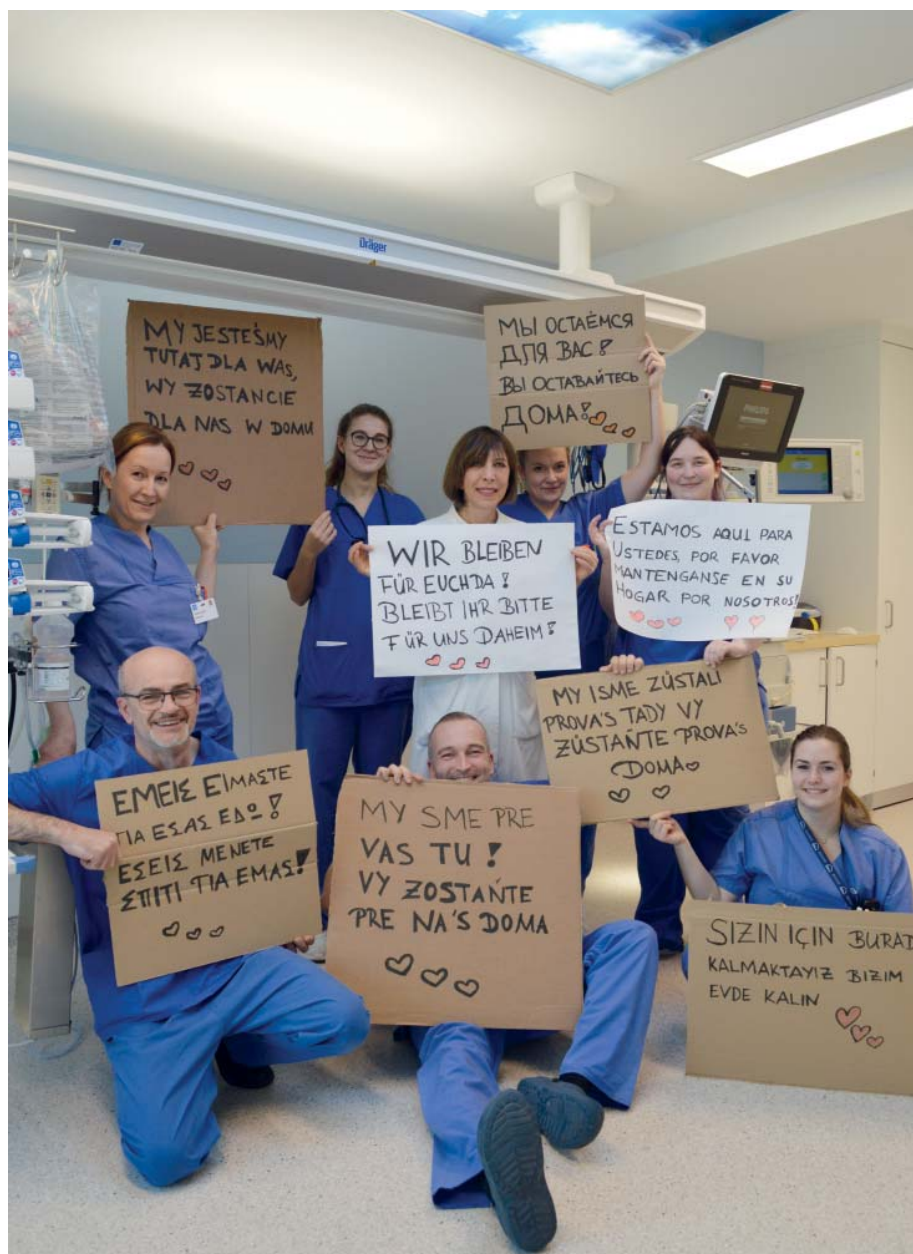 Dräger
MY JESTEŚMY
TUTAJ DLA WAS,
WY ZOSTAŃCIE
DLA NAS W DOMU
МЫ ОСТАЁМСЯ
ДЛЯ ВАС!
ВЫ ОСТАВАЙТЕСЬ
ДОМА!
WIR BLEIBEN
FÜR EUCH DA!
BLEIBT IHR BITTE
FÜR UNS DAHEIM!
ESTAMOS AQUI PARA
USTEDES, POR FAVOR
MANTENGANSE EN SU
HOGAR POR NOSOTROS!
MY ISME ZŮSTALI
PROVA'S TADY VY
ZŮSTAŇTE PROVA'S
DOMA
ΕΜΕΙΣ ΕΙΜΑΣΤΕ
ΓΙΑ ΕΣΑΣ ΕΔΩ!
ΕΣΕΙΣ ΜΕΝΕΤΕ
ΣΠΙΤΙ ΓΙΑ ΕΜΑΣ!
MY SME PRE
VAS TU!
VY ZOSTAŇTE
PRE NA'S DOMA
SIZIN IÇIN BURAD
KALMAKTAYIZ BIZIM
EVDE KALIN